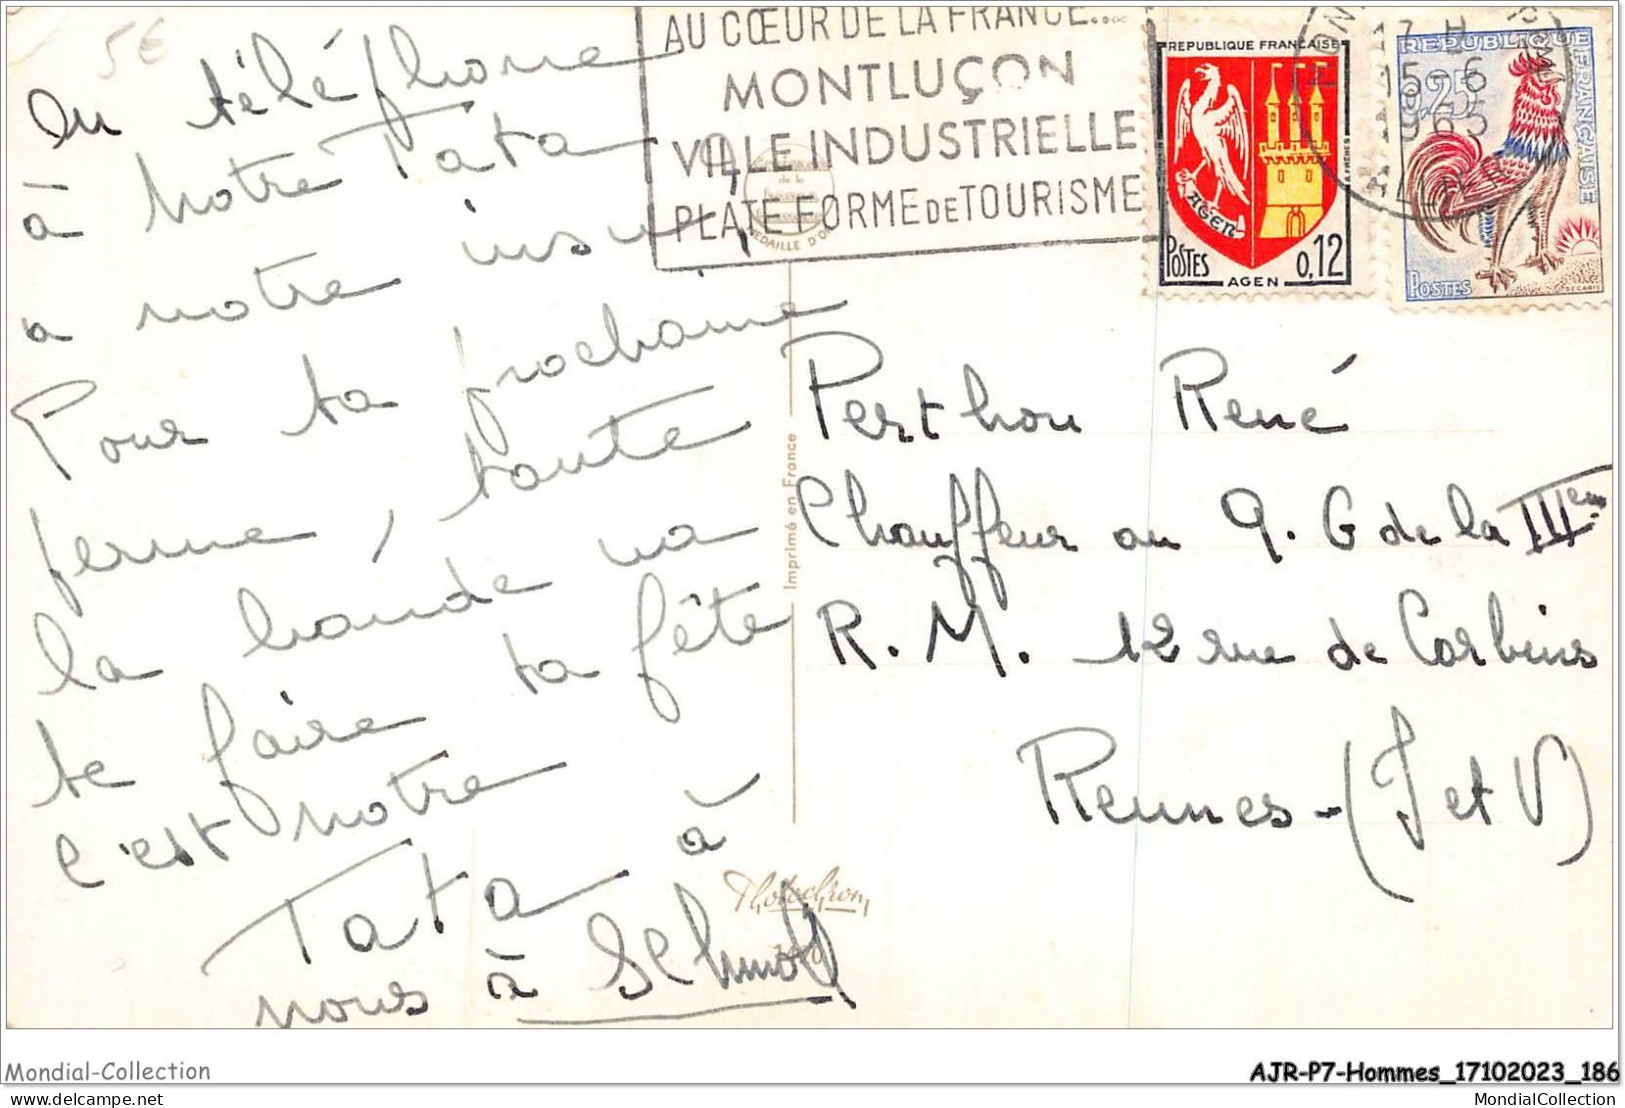 5€
On téléphone
à notre Tata
a notre insu !
Pour ta prochaine
ferme, toute
la bande va
te faire ta fête
c'est notre
Tata à
nous à
AU CŒUR DE LA FRANCE....
MONTLUÇON
VILLE INDUSTRIELLE
PLATE FORME DE TOURISME
MEDAILLE D'OR
REPUBLIQUE FRANÇAISE
AGEN
POSTES 0,12
AGEN
17 H
15-6
1965
ALLIER
REPUBLIQUE FRANÇAISE
0,25
POSTES
DECARIS
Imprimé en France
Perthon René
Chauffeur au Q. G de la IIIem
R. M. 12 rue de Corbins
Rennes - (I et V)
Photochrom
Mondial-Collection
delcampe.net
AJR-P7-Hommes_17102023_186
MondialCollection